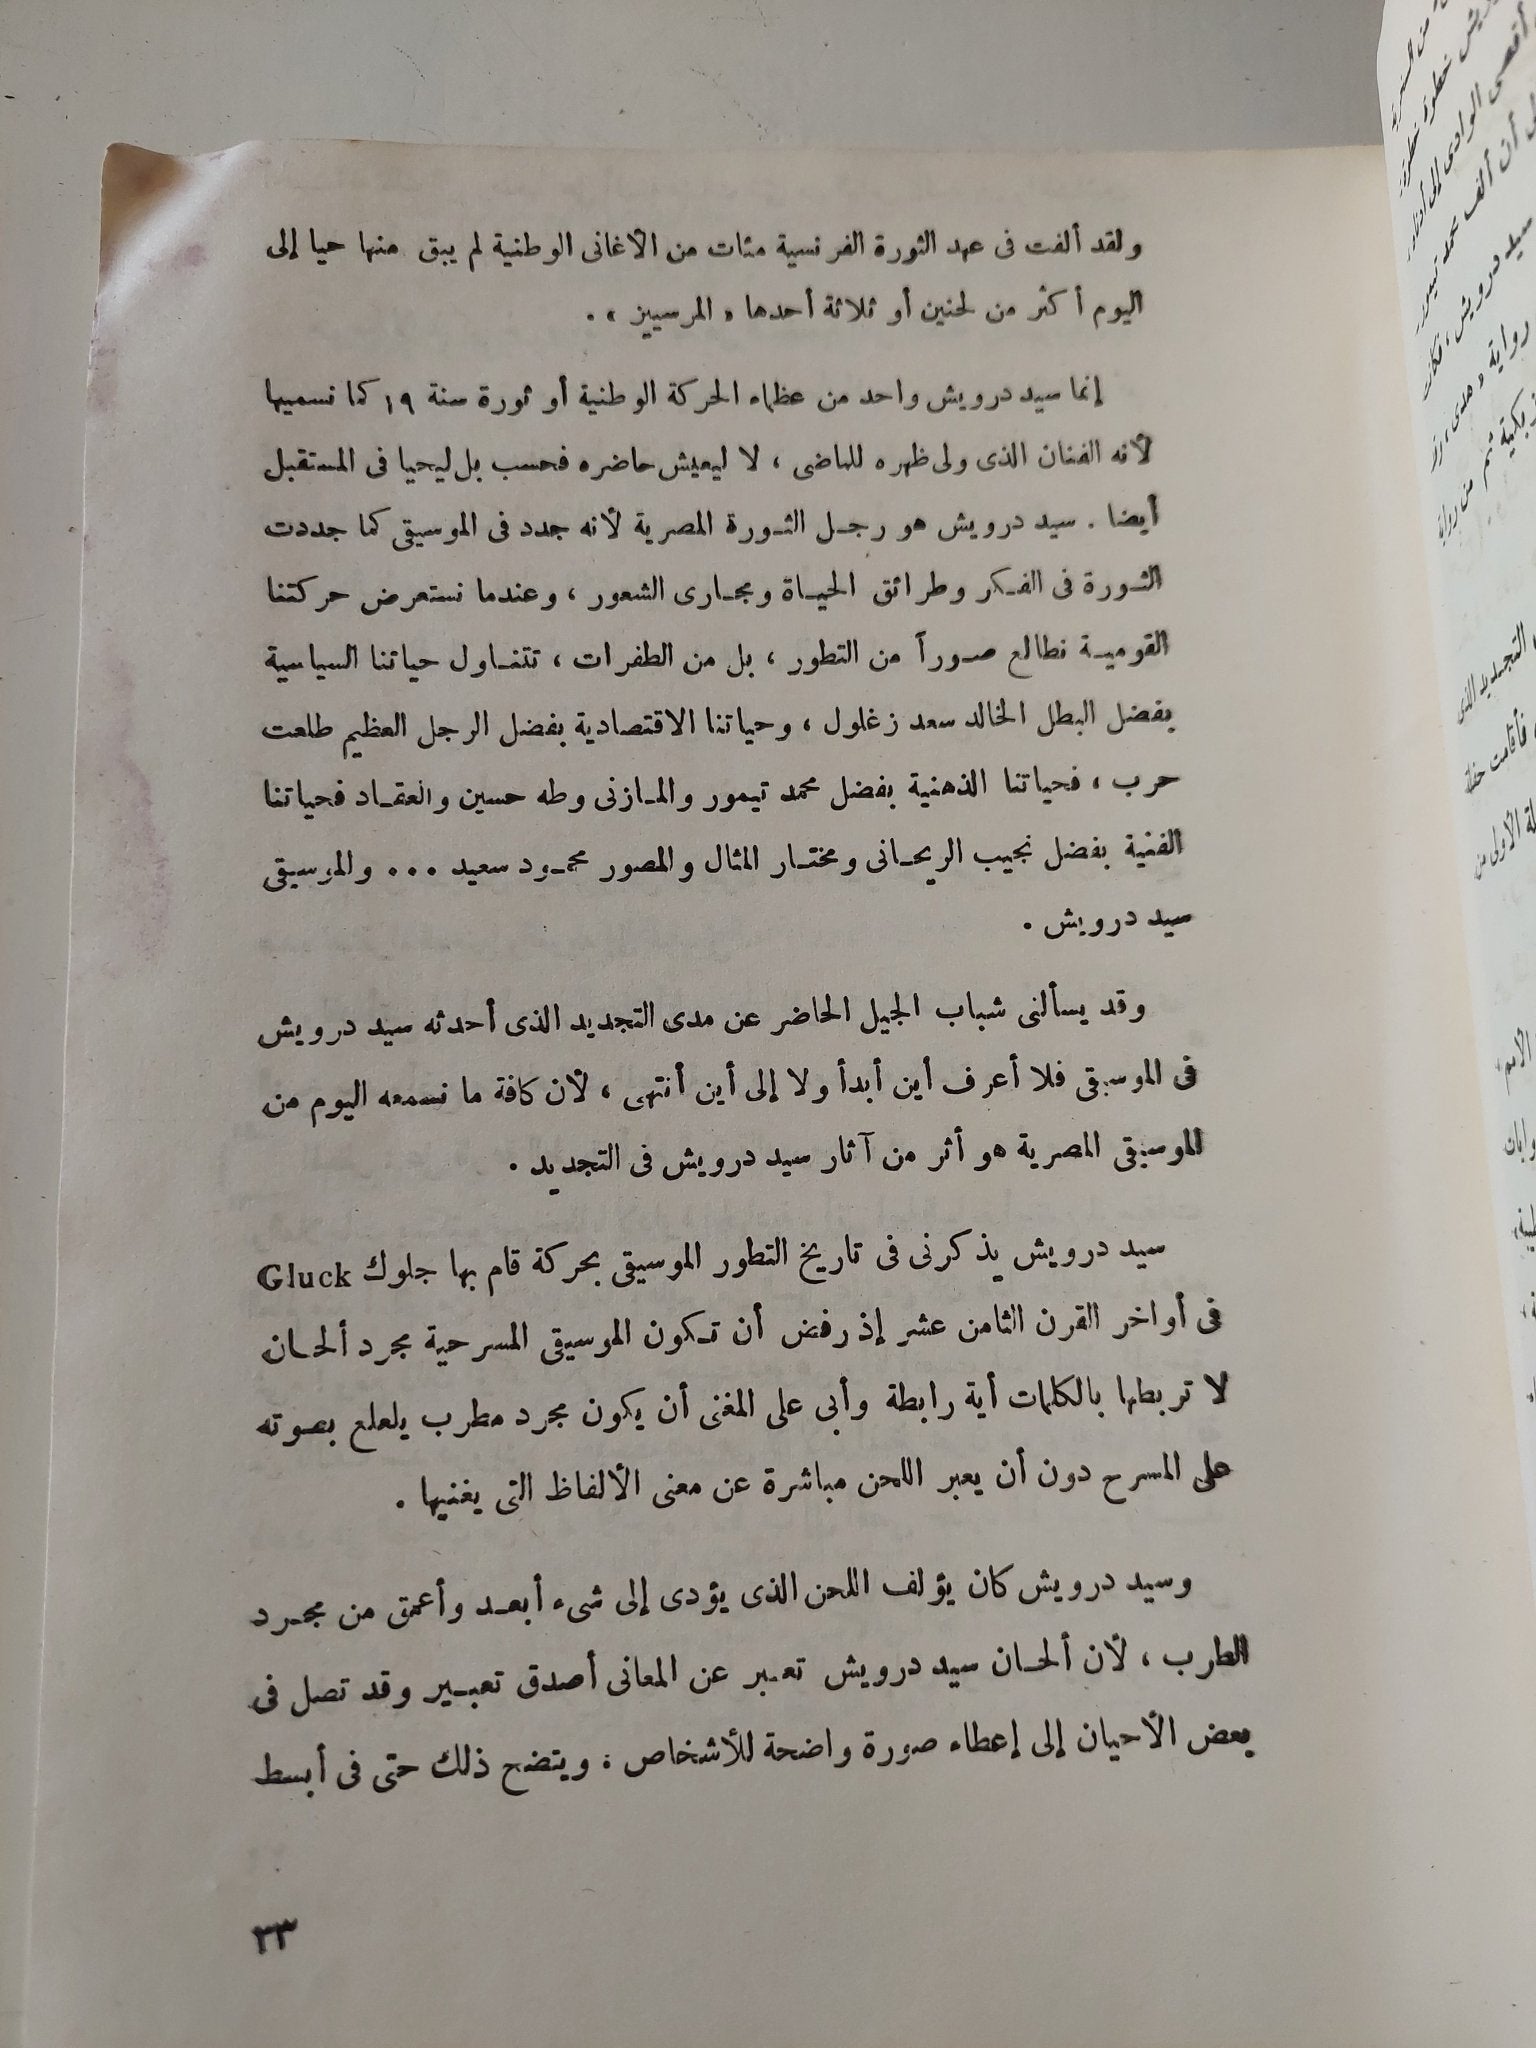 ولقد ألفت فى عهد الثورة الفرنسية مئات من الأغانى الوطنية لم يبق منها حيا إلى
اليوم أكثر من لحنين أو ثلاثة أحدها « المرسييز » .
إنما سيد درويش واحد من عظماء الحركة الوطنية أو ثورة سنة ١٩ كما نسميها
لأنه الفنان الذى ولى ظهره للماضى ، لا ليعيش حاضره فحسب بل ليحيا فى المستقبل
أيضا . سيد درويش هو رجل الثورة المصرية لأنه جدد فى الموسيقى كما جددت
الثورة فى الفكر وطرائق الحياة ومجارى الشعور ، وعندما نستعرض حركتنا
القومية نطالع صوراً من التطور ، بل من الطفرات ، تتناول حياتنا السياسية
بفضل البطل الخالد سعد زغلول ، وحياتنا الاقتصادية بفضل الرجل العظيم طلعت
حرب ، فحياتنا الذهنية بفضل محمد تيمور والمازنى وطه حسين والعقاد فحياتنا
الفنية بفضل نجيب الريحانى ومختار المثال والمصور محمود سعيد ... والموسيقى
سيد درويش .
وقد يسألنى شباب الجيل الحاضر عن مدى التجديد الذى أحدثه سيد درويش
فى الموسيقى فلا أعرف أين أبدأ ولا إلى أين أنتهى ، لأن كافة ما نسمعه اليوم من
الموسيقى المصرية هو أثر من آثار سيد درويش فى التجديد .
سيد درويش يذكرنى فى تاريخ التطور الموسيقى بحركة قام بها جلوك Gluck
فى أواخر القرن الثامن عشر إذ رفض أن تكون الموسيقى المسرحية مجرد ألحان
لا تربطها بالكلمات أية رابطة وأبى على المغنى أن يكون مجرد مطرب يلعلع بصوته
على المسرح دون أن يعبر اللحن مباشرة عن معنى الألفاظ التى يغنيها .
وسيد درويش كان يؤلف اللحن الذى يؤدى إلى شىء أبعد وأعمق من مجرد
الطرب ، لأن ألحان سيد درويش تعبر عن المعانى أصدق تعبير وقد تصل فى
بعض الأحيان إلى إعطاء صورة واضحة للأشخاص ، ويتضح ذلك حتى فى أبسط
٣٣
أقصى الوادى إلى
أن ألف محمد تيمور
سيد درويش ، فكانت
رواية « هدى ،
ثم من رواية
التجديد الذى
فأقامت حفلة
الأولى من
الأمم ،